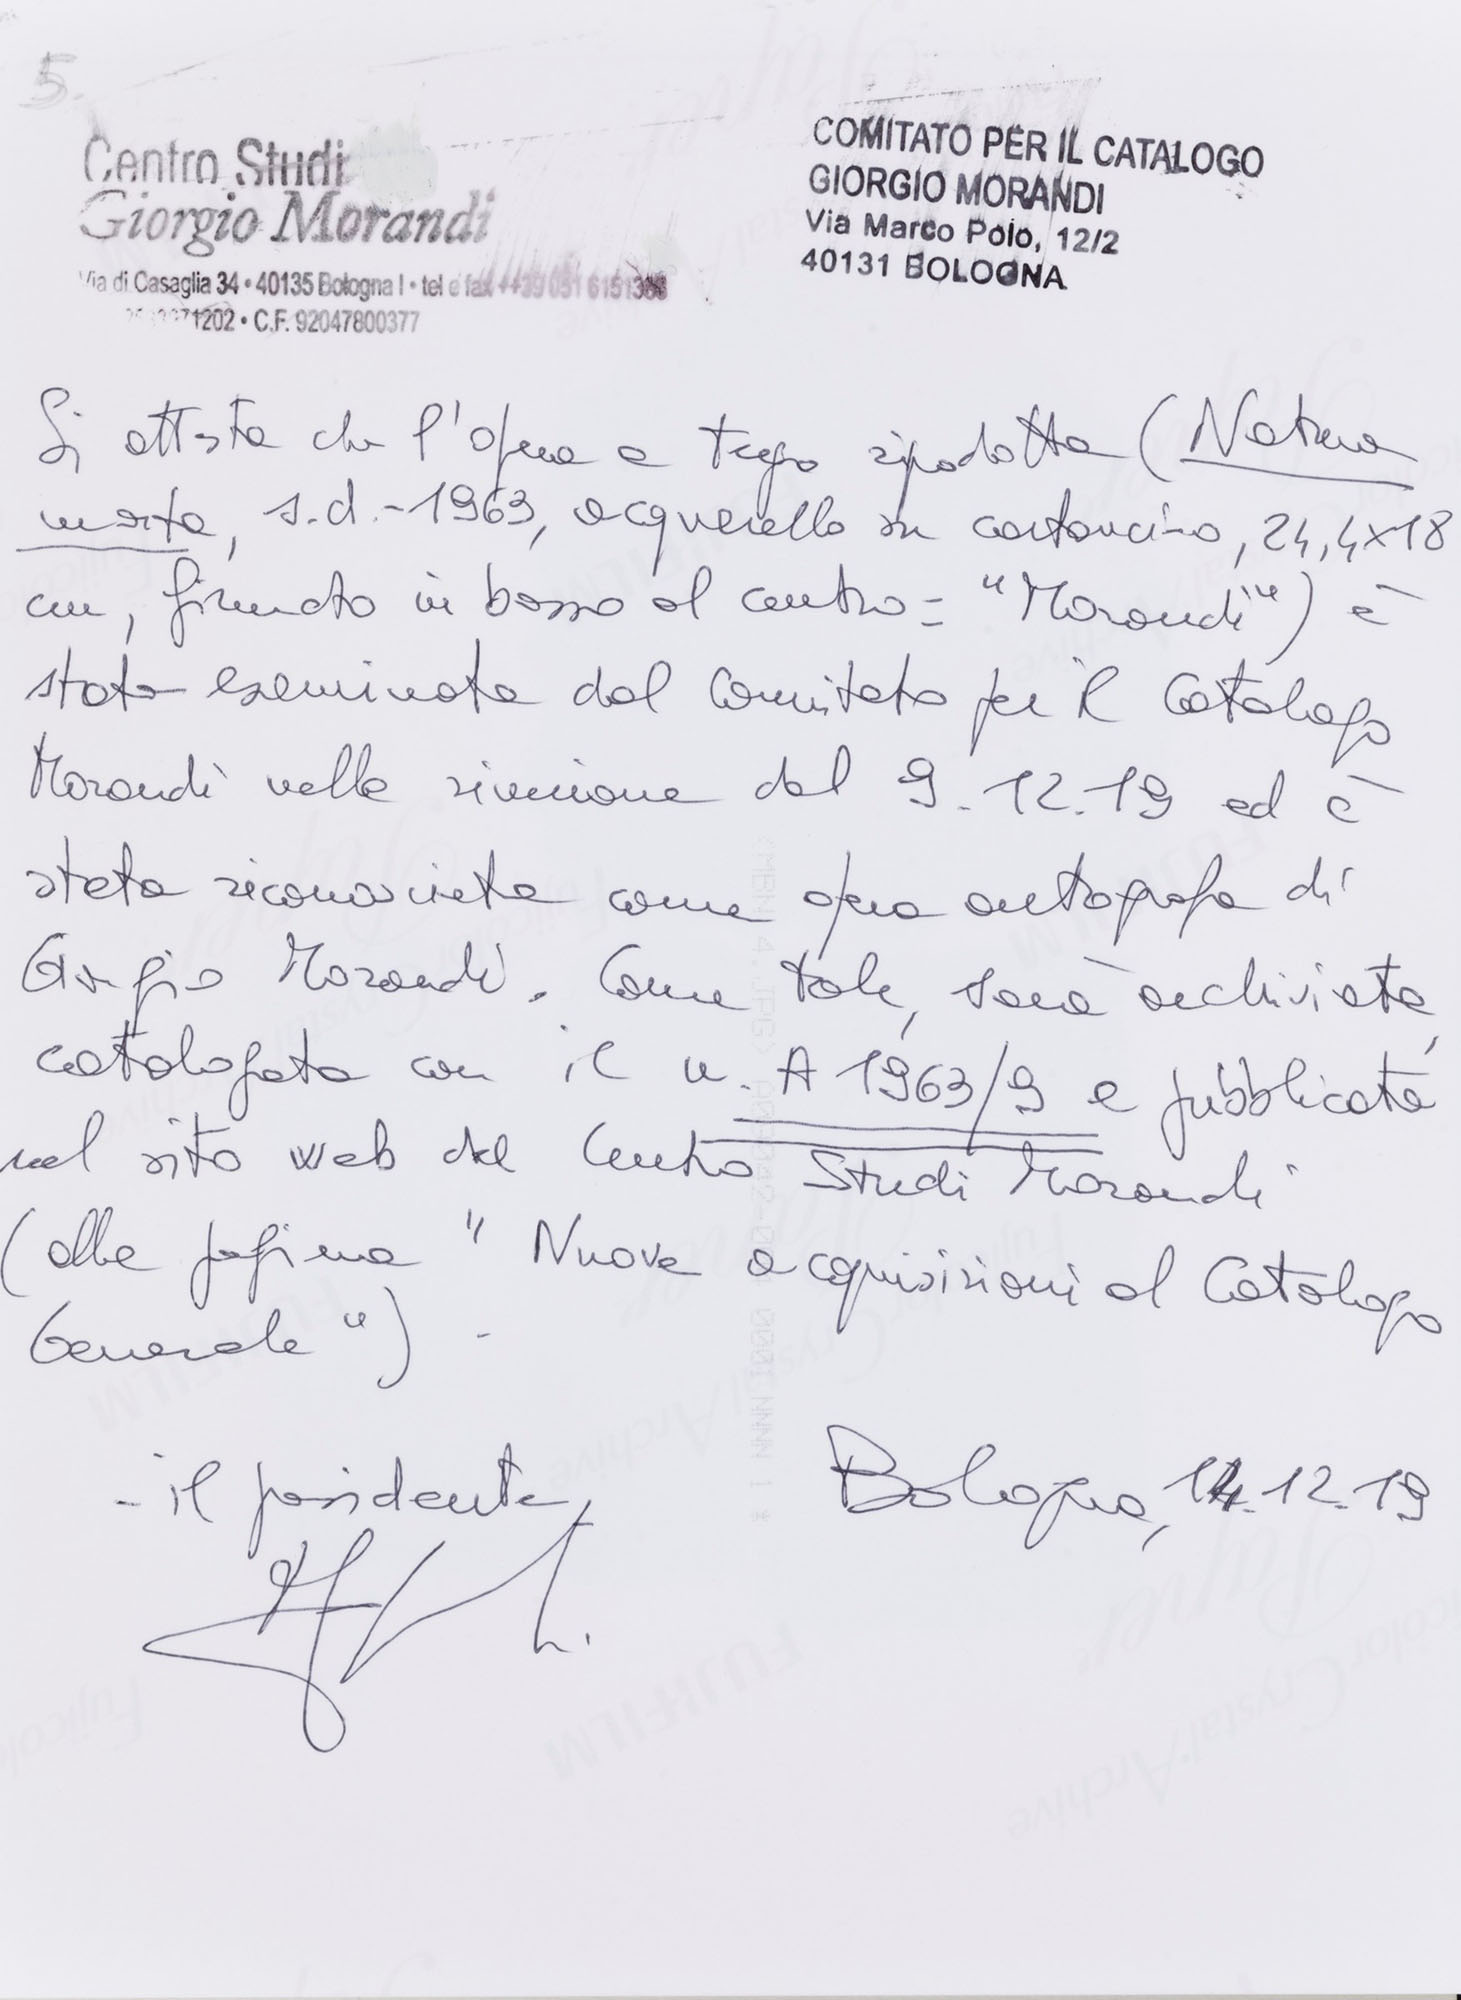 5.
Centro Studi
Giorgio Morandi
Via di Casaglia 34 • 40135 Bologna I • tel e fax ++39 051 6151368
1202 • C.F. 92047800377
COMITATO PER IL CATALOGO
GIORGIO MORANDI
Via Marco Polo, 12/2
40131 BOLOGNA
Si attesta che l'opera a tergo riprodotta (Natura
morta, s.d.-1963, acquerello su cartoncino, 24,4x18
cm, firmato in basso al centro: "Morandi") è
stata esaminata dal Comitato per il Catalogo
Morandi nella riunione del 9.12.19 ed è
stata riconosciuta come opera autografa di
Giorgio Morandi. Come tale, sarà archiviata,
catalogata con il n. A 1963/9 e pubblicata
nel sito web del Centro Studi Morandi
(alla pagina "Nuove acquisizioni al Catalogo
Generale").
- il presidente,
Bologna, 14.12.19
FUJIFILM
Fujicolor Crystal Archive
Paper